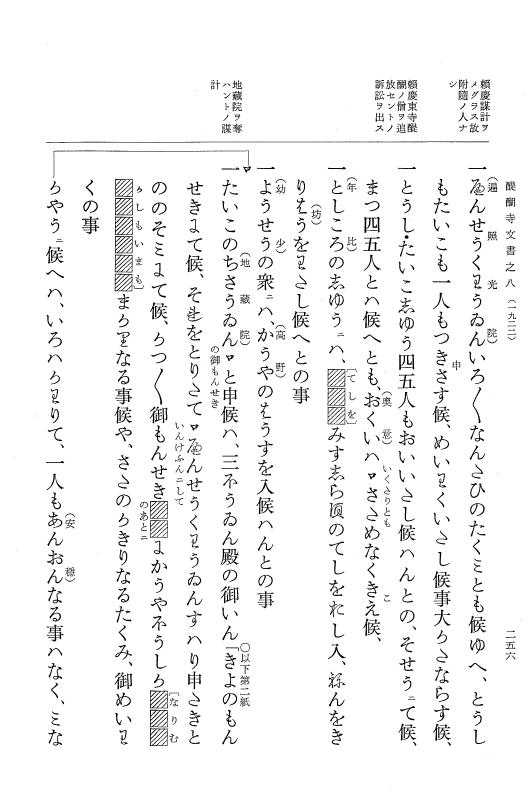 醍醐寺文書之八（一九二二）
二五六
頼慶謀計ヲ
メグラス故
附随ノ人ナ
シ
頼慶東寺醍
醐ノ僧ヲ追
放セントノ
訴訟ヲ出ス
地蔵院ヲ奪
ハントノ謀
計
一（遍照光院）へんせうくわうゐんいろ〳〵なんたひのたくミとも候ゆへ、とうし
もたいこも一人もつきさす候、めいわくいたし候事大かたならす候、
一とうし・たいこしゆう四五人もおいいたし候ハんとの、そせうニて候、
まつ四五人とハ候へとも、おくいハ
一としころのしゆうハ、〔てしを〕みすしらすのてしをたし入、
りはうをわたし候へとの事
一ようせうの衆ニハ、かうやのはうすを入候ハんとの事
一たいこのちさうゐんと申候ハ、三ほうゐん殿の御いん「きよのもん
〇以下第二紙
の御もんせき
せきにて候、それをとりたて
いんけふんニして
へんせうくわうゐんすハり申たきと
ののそミにて候、かつ〳〵御もんせき
のあとニ
にかうやほうしか〔なりむ
かしもいまも〕まかりなる事候や、さたのかきりなるたくみ、御めいわ
くの事
かやうニ候へハ、いろハかわりて、一人もあんおんなる事ハなく、ミな